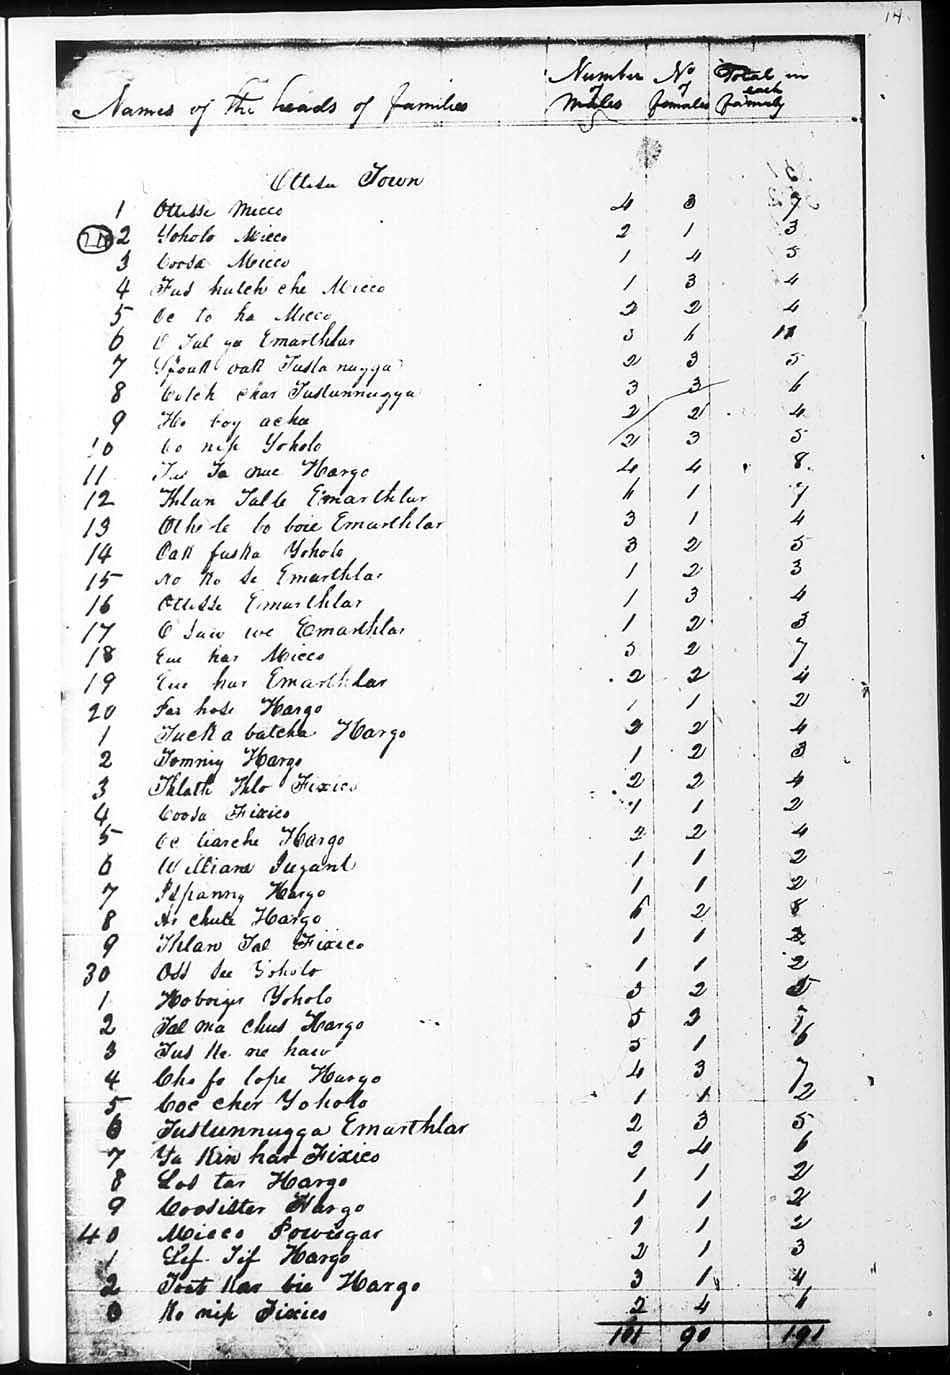 14
Names of the heads of families Number of Males No of females Total in each family
Ottisse Town
1 Ottisse Micco 4 3 7
2 Yoholo Micco 2 1 3
3 Coosa Micco 1 4 5
4 Fus hutch che Micco 1 3 4
5 Oc to ha Micco 2 2 4
6 O Tal ga Emarthlar 5 6 11
7 oak Tusta nugga 2 3 5
8 Cotch char Tustunnugga 3 3 6
9 Ho boy acha 2 2 4
10 Co nip Yoholo 2 3 5
11 Hargo 4 4 8
12 Thlan Talle Emarthlar 6 1 7
13 bo boie Emarthlar 3 1 4
14 Oak fuska Yoholo 3 2 5
15 No ko se Emarthlar 1 2 3
16 Ottisse Emarthlar 1 3 4
17 we Emarthlar 1 2 3
18 har Micco 5 2 7
19 har Emarthlar 2 2 4
20 hose Hargo 1 1 2
1 Tuck a batcha Hargo 2 2 4
2 Tommy Hargo 1 2 3
3 Thlath thlo Fixico 2 2 4
4 Coosa Fixico 1 1 2
5 Oc tiarche Hargo 2 2 4
6 William 1 1 2
7 Ispanny Hargo 1 1 2
8 chule Hargo 6 2 8
9 Thlan Tal Fixico 1 1 2
30 Oss see Yoholo 1 1 2
1 Hoboiye Yoholo 3 2 5
2 Tal ma chus Hargo 5 2 7
3 Tus ke ne haw 5 1 6
4 Cho fo lope Hargo 4 3 7
5 Coc cher Yoholo 1 1 2
6 Tustunnugga Emarthlar 2 3 5
7 Ya kin har Fixico 2 4 6
8 Los tar Hargo 1 1 2
9 Coosister Hargo 1 1 2
40 Micco 1 1 2
1 Lif Tif Hargo 2 1 3
2 Toot kas bie Hargo 3 1 4
3 Ko nip Fixico 2 4 6
101 90 191